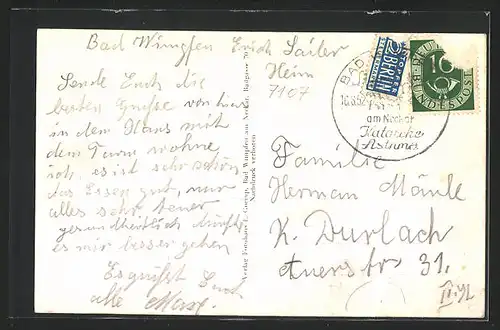 Bad Wimpfen Erich Sailer
Heim
7107
Sende Euch die
besten Grüße von hier
in dem Haus mit
dem Turm wohne
ich, es ist sehr schön
das Essen gut, nur
alles sehr teuer
gesundheitlich
es mir besser gehen
Es grüßt Euch
alle
Verlag Fotohaus E. Gottesp, Bad Wimpfen am Neckar,
Nachdruck verboten
NOTOPFER
2 BERLIN
STEUERMARKE
10
DEUTSCHE
BUNDESPOST
BAD
am Neckar
Katarrhe
Asthma
Familie
Herman Mänle
K. Durlach
Auerstr 31.